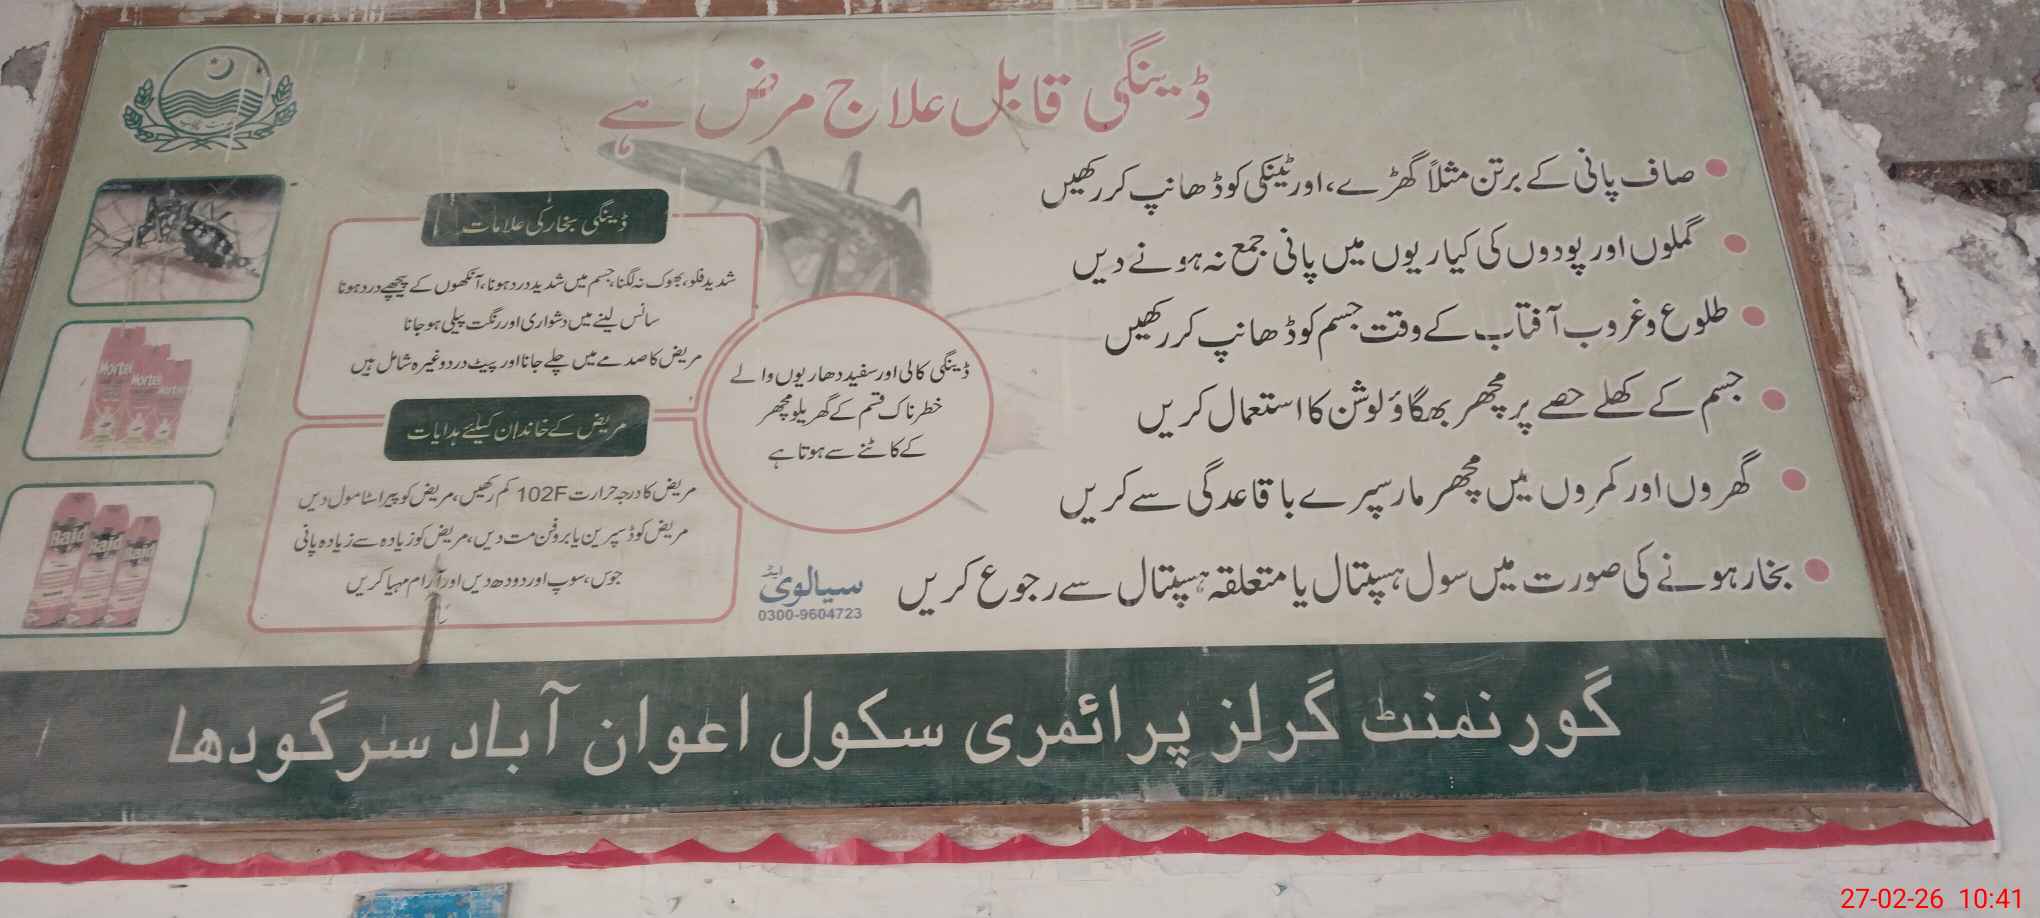 ڈینگی قابل علاج مرض ہے
صاف پانی کے برتن مثلاً گھڑے، اور ٹینکی کو ڈھانپ کر رکھیں
گملوں اور پودوں کی کیاریوں میں پانی جمع نہ ہونے دیں
طلوع و غروب آفتاب کے وقت جسم کو ڈھانپ کر رکھیں
جسم کے کھلے حصے پر مچھر بھگاؤ لوشن کا استعمال کریں
گھروں اور کمروں میں مچھر مار سپرے باقاعدگی سے کریں
بخار ہونے کی صورت میں سول ہسپتال یا متعلقہ ہسپتال سے رجوع کریں
ڈینگی بخار کی علامات
شدید فلو، بھوک نہ لگنا، جسم میں شدید درد ہونا، آنکھوں کے پیچھے درد ہونا
سانس لینے میں دشواری اور رنگت پیلی ہو جانا
مریض کا صدمے میں چلے جانا اور پیٹ درد وغیرہ شامل ہیں
ڈینگی کالی اور سفید دھاریوں والے
خطرناک قسم کے گھریلو مچھر
کے کاٹنے سے ہوتا ہے
مریض کے خاندان کیلئے ہدایات
مریض کا درجہ حرارت 102F کم رکھیں، مریض کو پیراسٹامول دیں
مریض کو ڈسپرین یا بروفن مت دیں، مریض کو زیادہ سے زیادہ پانی
جوس، سوپ اور دودھ دیں اور آرام مہیا کریں
Mortein
Mortein
Raid
Raid
Raid
سیالوی ایڈ
0300-9604723
گورنمنٹ گرلز پرائمری سکول اعوان آباد سرگودھا
27-02-26 10:41